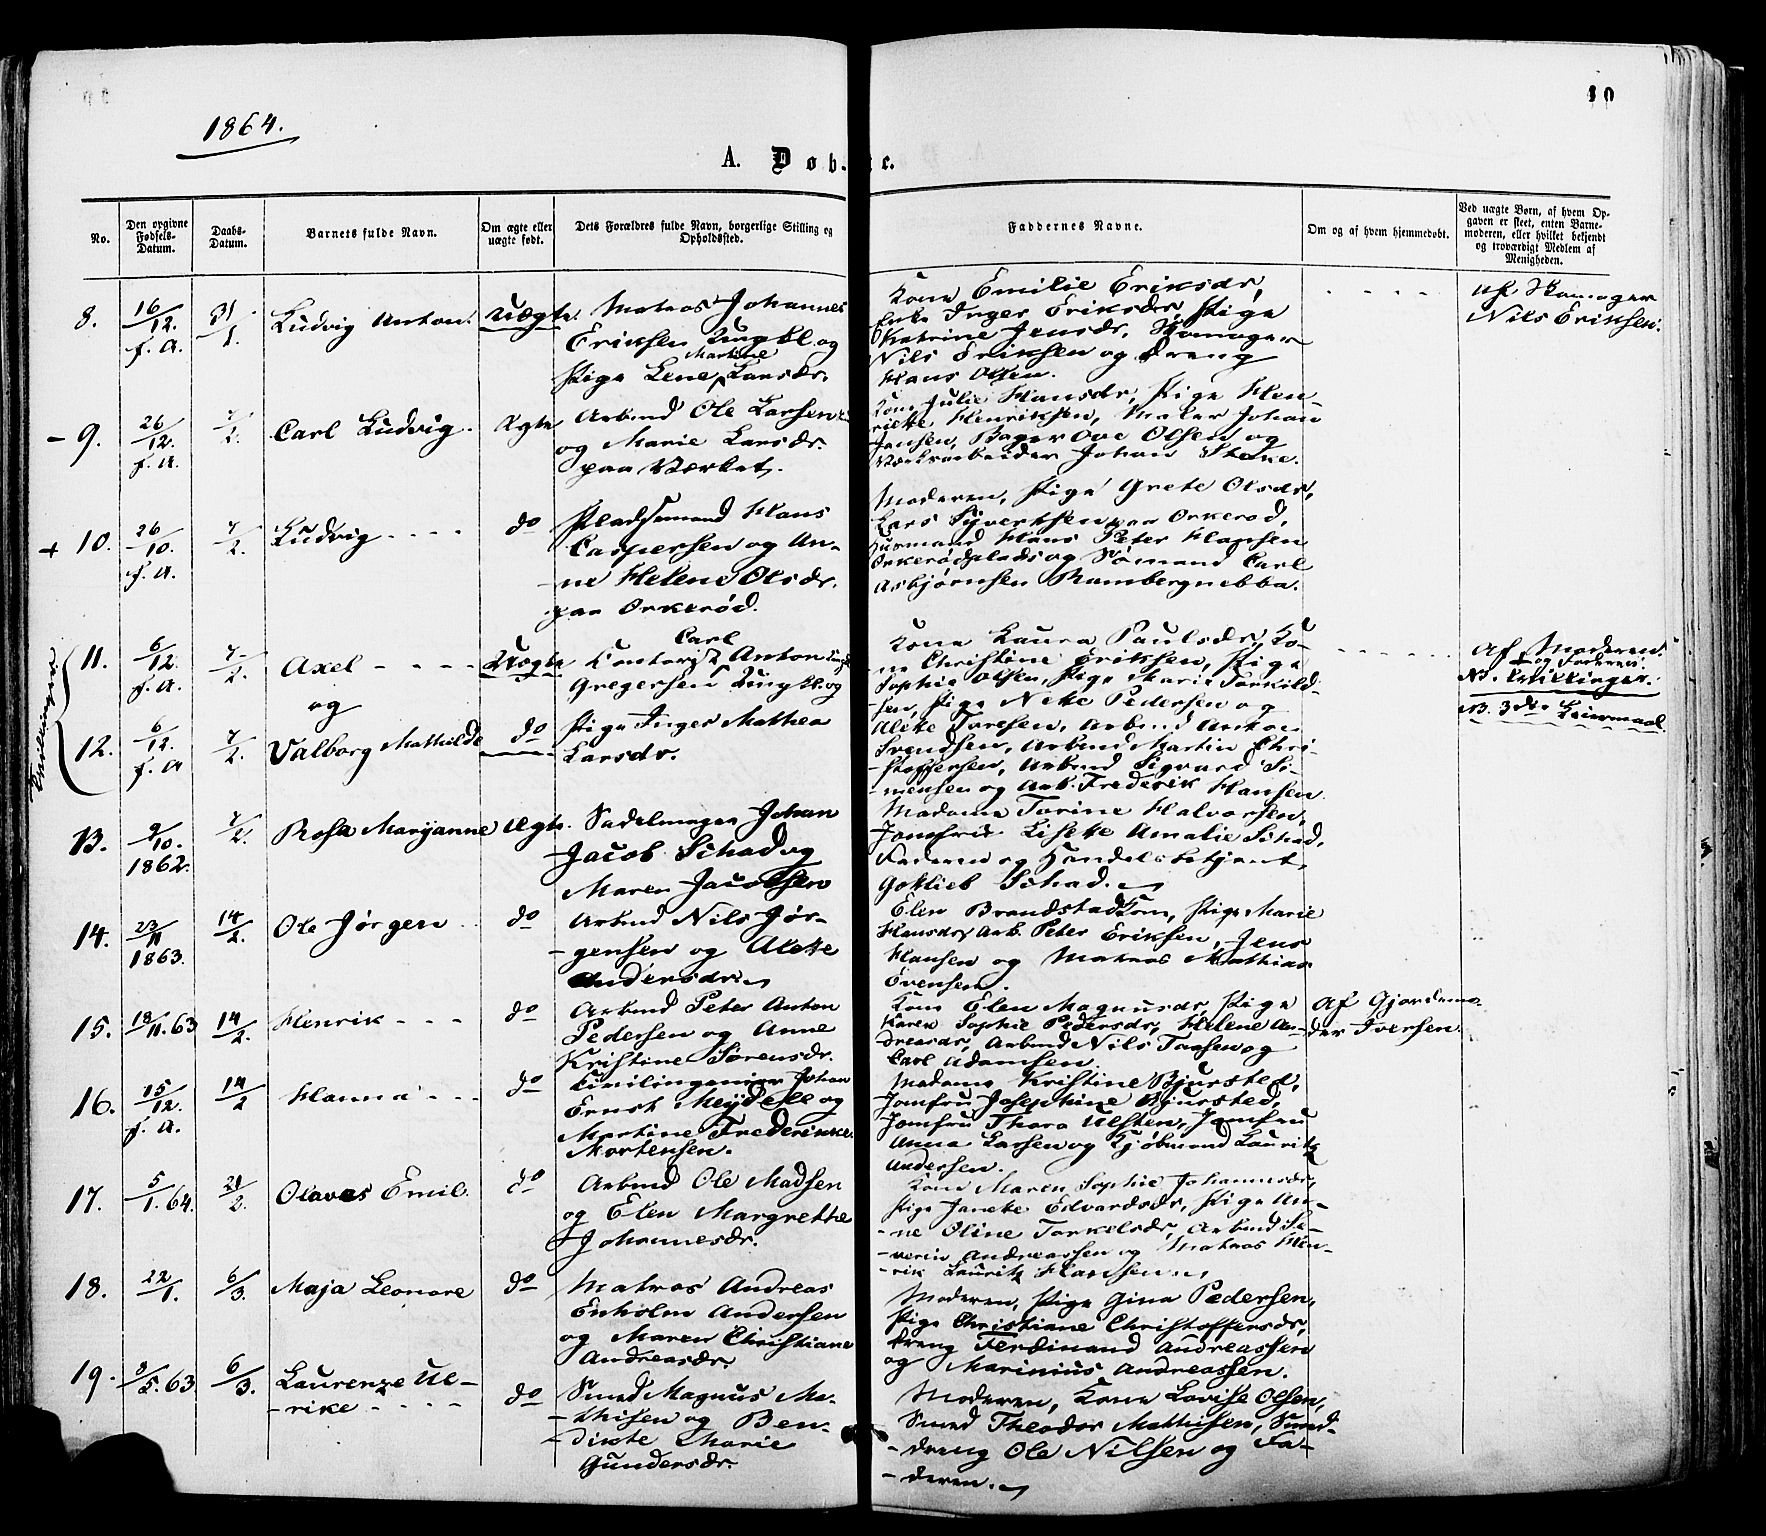 10
1864.
A. Døb- te.
No.
Den opgivne Fødsels-Datum.
Daabs-Datum.
Barnets fulde Navn.
Om ægte eller uægte født.
Dets Forældres fulde Navn, borgerlige Stilling og Opholdssted.
Faddernes Navne.
Om og af hvem hjemmedøbt.
Ved uægte Børn, af hvem Opgaven er skeet, enten Barnemoderen, eller hvilket bekjendt og troværdigt Medlem af Menigheden.
8.
16/12. f. A.
31/1.
Ludvig Anton.
Uægte.
Matros Johannes
Eriksen Ungkl. og
Pige Lene Martine Larsdr.
Kone Emilie Eriksdr,
Enke Inger Eriksdr, Pige
Katrine Jensdr, Skomager
Nils Eriksen og Dreng
Hans Olsen.
af Skomager
Nils Eriksen.
- 9.
26/12. f. A.
7/2.
Carl Ludvig.
Ægte
Arbmd Ole Larsen
og Marie Larsdr.
paa Værket.
Kone Julie Hansdr, Pige Hen-
rikke Henriksen, Maler Johan
Jansen, Bager Ove Olsen og
Værksarbeider Johan
+ 10.
26/10. f. A.
7/2.
Ludvig - - - -
do
Pladsemand Hans
Caspersen og An-
ne Helene Olsdr.
paa Orkerød.
Moderen, Pige Grete Olsdr,
Lars Syvertsen paa Orkerød,
Husmand Hans Peter Hansen
Orkerødplads og Sømand Carl
Asbjørnsen Rambergnebba.
Tvillinger
11.
6/12. f. A.
7/2.
Axel - - - -
og
Uægte
Kontorist Carl Anton
Gregersen Ungkl. og
Kone Laura Paulsdr, Ko-
ne Christine Eriksen, Pige
Sophie Olsen, Pige Marie Torkild-
sen, Pige Neke Pedersen og
Af Moderen.
og Faderen.
NB. Tvillinger.
NB. 3die Leiermaal.
12.
6/12. f. A
7/2.
Valborg Mathilde
do
Pige Inger Mathea
Larsdr.
Alette Toresen, Arbmd Anton
Svendsen, Arbmd Martin Chri-
stoffersen, Arbmd Sigvard Si-
mensen og Arb. Frederik Hansen.
13.
9/10. 1862.
7/2.
Rosa Maryanne
Ægte.
Sadelmager Johan
Jacob Schad og
Maren Jacobsen
Madama Torine Halvorsen,
Jomfru Lisette Amalie Schad,
Faderen og Handelsbetjent,
Gotlieb Schad.
14.
23/11 1863.
14/2.
Ole Jørgen
do
Arbmd Nils Jør-
gensen og Alette
Andersdr.
Elen Brandstadtom, Pige Marie
Hansdr, Arb. Peter Eriksen, Jens
Hansen og Matros Mathias
Evensen.
15.
18/11. 63
14/2.
Henrik - - -
do
Arbmd Peter Anton
Pedersen og Anne
Kristine Sørensdr.
Kone Elen Magnusdr, Pige
Karen Sophie Pedersdr, Helene An-
dreasdr, Arbmd Nils Torsen og
Carl Adamsen.
Af Gjordemo-
der Iversen.
16.
15/12. f. A.
14/2
Hanna - - -
do
Civilingeniør Johan
Ernst Meydell og
Martine Frederikke
Mortensen.
Madama Kristine Bjursted,
Jomfru Josephine Bjursted,
Jomfru Thora Ulsten, Jomfru
Anna Larsen og Kjøbmand Lauritz
Andersen.
17.
5/1. 64.
21/2.
Olaves Emil.
do
Arbmd Ole Madsen
og Elen Margrethe
Johannesdr.
Kone Maren Sophie Johannesdr,
Pige Janeke Edvardsdr, Pige An-
ne Oline Torkelsdr, Arbmd Se-
verin Andreassen og Matros Hen-
rik Lauritz Hansen.
18.
22/1.
6/3.
Maja Leonore
do
Matros Andreas
Enholm Andersen
og Maren Christiane
Andreasdr.
Moderen, Pige Gina Pedersen,
Pige Christiane Christoffersdr,
Dreng Ferdinand Andreassen
og Marinius Andreassen.
19.
3/5. 63
6/3.
Laurenze Ul-
-rike - - - -
do
Smed Magnus Ma-
thisen og Ben-
dikte Marie
Gundersdr.
Moderen, Kone Lovise Olsen,
Smed Theodor Mathisen, Smed-
dreng Ole Nilsen og Fa-
deren.